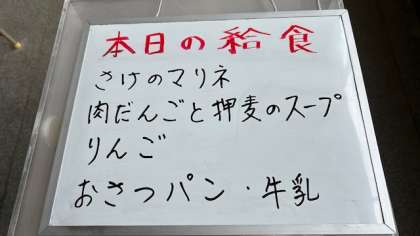 本日の給食
さけのマリネ
肉だんごと押麦のスープ
りんご
おさつパン・牛乳